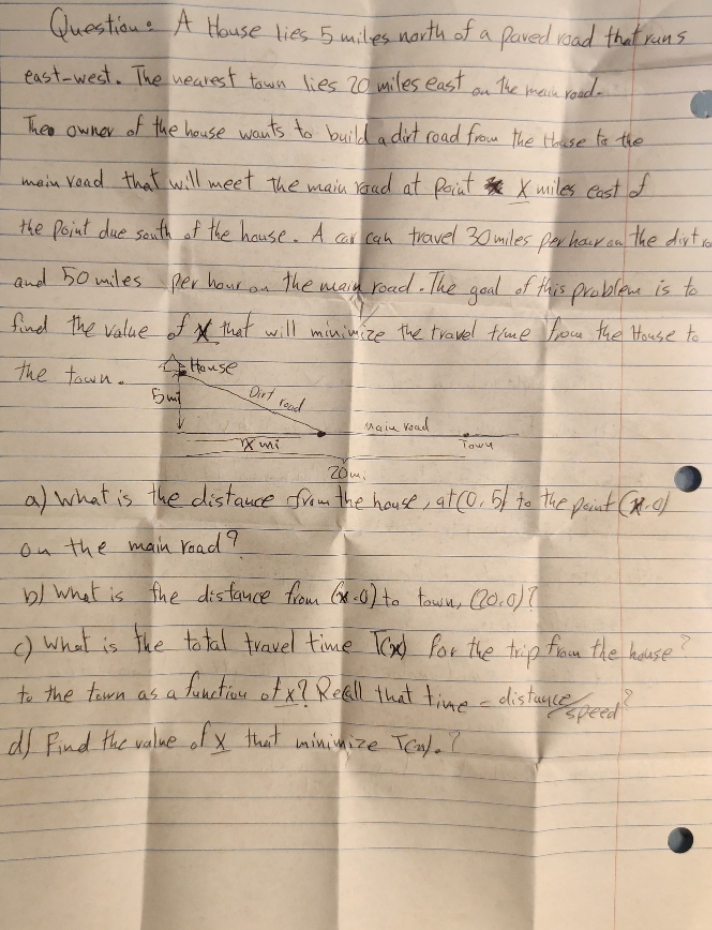 Question: A House lies 5 miles north of a paved road that runs
east-west. The nearest town lies 20 miles east on the main road.
The owner of the house wants to build a dirt road from the House to the
main road that will meet the main road at point X miles east of
the point due south of the house. A car can travel 30 miles per hour on the dirt ro
and 50 miles per hour on the main road. The goal of this problem is to
find the value of X that will minimize the travel time from the House to
the town.
House
5 mi
Dirt road
main road
X mi
Town
20 mi
a) What is the distance from the house, at (0,5) to the point (x,0)
on the main road?
b) What is the distance from (x,0) to town, (20,0)?
c) What is the total travel time T(x) for the trip from the house?
to the town as a function of x? Recall that time = distance/speed?
d) Find the value of x that minimize T(x).?